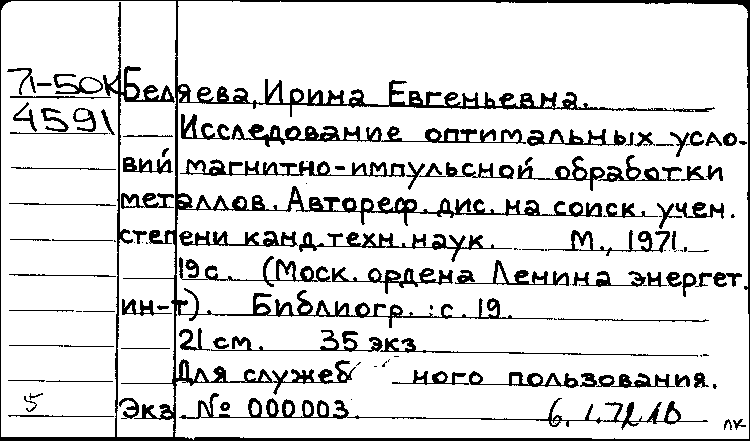 71-50к Беляева, Ирина Евгеньевна.
4591 Исследование оптимальных усло-
вий магнитно-импульсной обработки
металлов. Автореф. дис. на соиск. учен.
степени канд. техн. наук. М., 1971.
19 с. (Моск. ордена Ленина энергет.
ин-т). Библиогр.: с. 19.
21 см. 35 экз.
Для служеб ного пользования.
5 Экз. № 000003.
лк